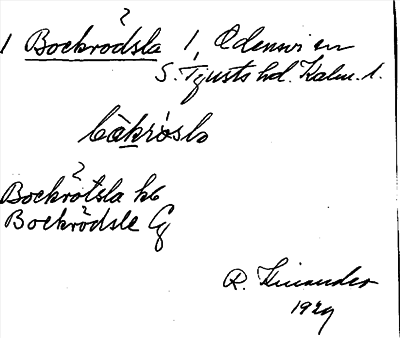 1 Bockrodsla 1, Odensvi sn
S. Tjusts hd. Kalm. l.
bòkròsla
Bockrötsla kb
Bockrödsle Cg
R. Kinander
1929